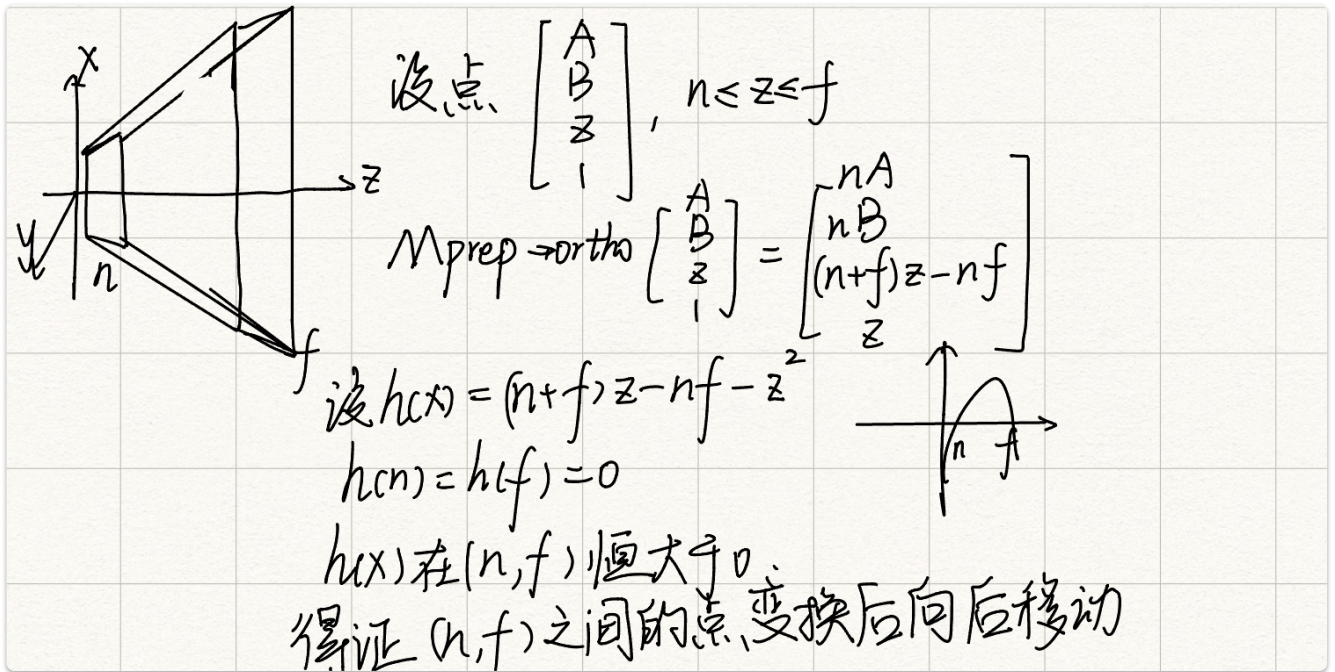 x
z
y
n
f
设点 [A B z 1], n≤z≤f
Mprep→ortho [A B z 1] = [nA nB (n+f)z-nf z]
设h(x)=(n+f)z-nf-z²
n f
h(n)=h(f)=0
h(x)在(n,f)恒大于0.
得证(n,f)之间的点变换后向后移动